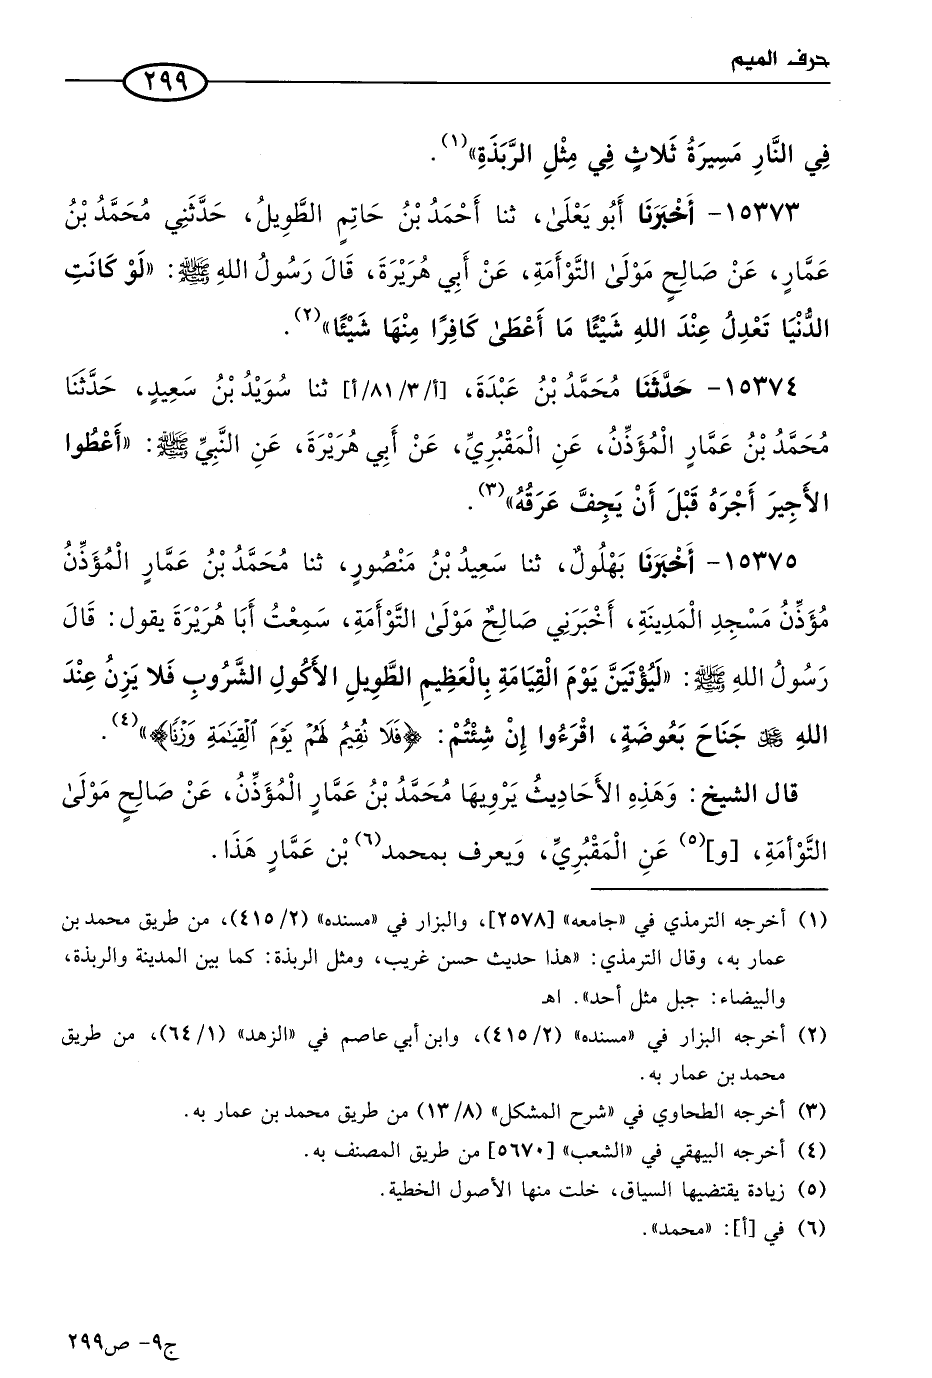 حرف الميم
٢٩٩
فِي النَّارِ مَسِيرَةُ ثَلاثٍ فِي مِثْلِ الرَّبَذَةِ»(١).
١٥٣٧٣- أَخْبَرَنَا أَبُو يَعْلَىٰ، ثنا أَحْمَدُ بْنُ حَاتِمٍ الطَّوِيلُ، حَدَّثَنِي مُحَمَّدُ بْنُ
عَمَّارٍ، عَنْ صَالِحٍ مَوْلَىٰ التَّوْأَمَةِ، عَنْ أَبِي هُرَيْرَةَ، قَالَ رَسُولُ اللهِ ﷺ: «لَوْ كَانَتِ
الدُّنْيَا تَعْدِلُ عِنْدَ اللهِ شَيْئًا مَا أَعْطَىٰ كَافِرًا مِنْهَا شَيْئًا»(٢).
١٥٣٧٤- حَدَّثَنَا مُحَمَّدُ بْنُ عَبْدَةَ، [أ/٣/٨١/أ] ثنا سُوَيْدُ بْنُ سَعِيدٍ، حَدَّثَنَا
مُحَمَّدُ بْنُ عَمَّارٍ الْمُؤَذِّنُ، عَنِ الْمَقْبُرِيِّ، عَنْ أَبِي هُرَيْرَةَ، عَنِ النَّبِيِّ ﷺ: «أَعْطُوا
الأَجِيرَ أَجْرَهُ قَبْلَ أَنْ يَجِفَّ عَرَقُهُ»(٣).
١٥٣٧٥- أَخْبَرَنَا بَهْلُولٌ، ثنا سَعِيدُ بْنُ مَنْصُورٍ، ثنا مُحَمَّدُ بْنُ عَمَّارٍ الْمُؤَذِّنُ
مُؤَذِّنُ مَسْجِدِ الْمَدِينَةِ، أَخْبَرَنِي صَالِحٌ مَوْلَىٰ التَّوْأَمَةِ، سَمِعْتُ أَبَا هُرَيْرَةَ يقول: قَالَ
رَسُولُ اللهِ ﷺ: «لَيُؤْتَيَنَّ يَوْمَ الْقِيَامَةِ بِالْعَظِيمِ الطَّوِيلِ الأَكُولِ الشَّرُوبِ فَلا يَزِنُ عِنْدَ
اللهِ ﷻ جَنَاحَ بَعُوضَةٍ، اقْرَءُوا إِنْ شِئْتُمْ: ﴿فَلَا نُقِيمُ لَهُمْ يَوْمَ ٱلْقِيَٰمَةِ وَزْنًا﴾»(٤).
قال الشيخ: وَهَذِهِ الأَحَادِيثُ يَرْوِيهَا مُحَمَّدُ بْنُ عَمَّارٍ الْمُؤَذِّنُ، عَنْ صَالِحٍ مَوْلَىٰ
التَّوْأمَةِ، [و](٥) عَنِ الْمَقْبُرِيِّ، وَيعرف بمحمد(٦) بْن عَمَّارٍ هَذَا.
(١) أخرجه الترمذي في «جامعه» [٢٥٧٨]، والبزار في «مسنده» (٤١٥/٢)، من طريق محمد بن
عمار به، وقال الترمذي: «هذا حديث حسن غريب، ومثل الربذة: كما بين المدينة والربذة،
والبيضاء: جبل مثل أحد». اهـ
(٢) أخرجه البزار في «مسنده» (٤١٥/٢)، وابن أبي عاصم في «الزهد» (٦٤/١)، من طريق
محمد بن عمار به.
(٣) أخرجه الطحاوي في «شرح المشكل» (١٣/٨) من طريق محمد بن عمار به.
(٤) أخرجه البيهقي في «الشعب» [٥٦٧٠] من طريق المصنف به.
(٥) زيادة يقتضيها السياق، خلت منها الأصول الخطية.
(٦) في [أ]: «محمد».
ج٩- ص٢٩٩